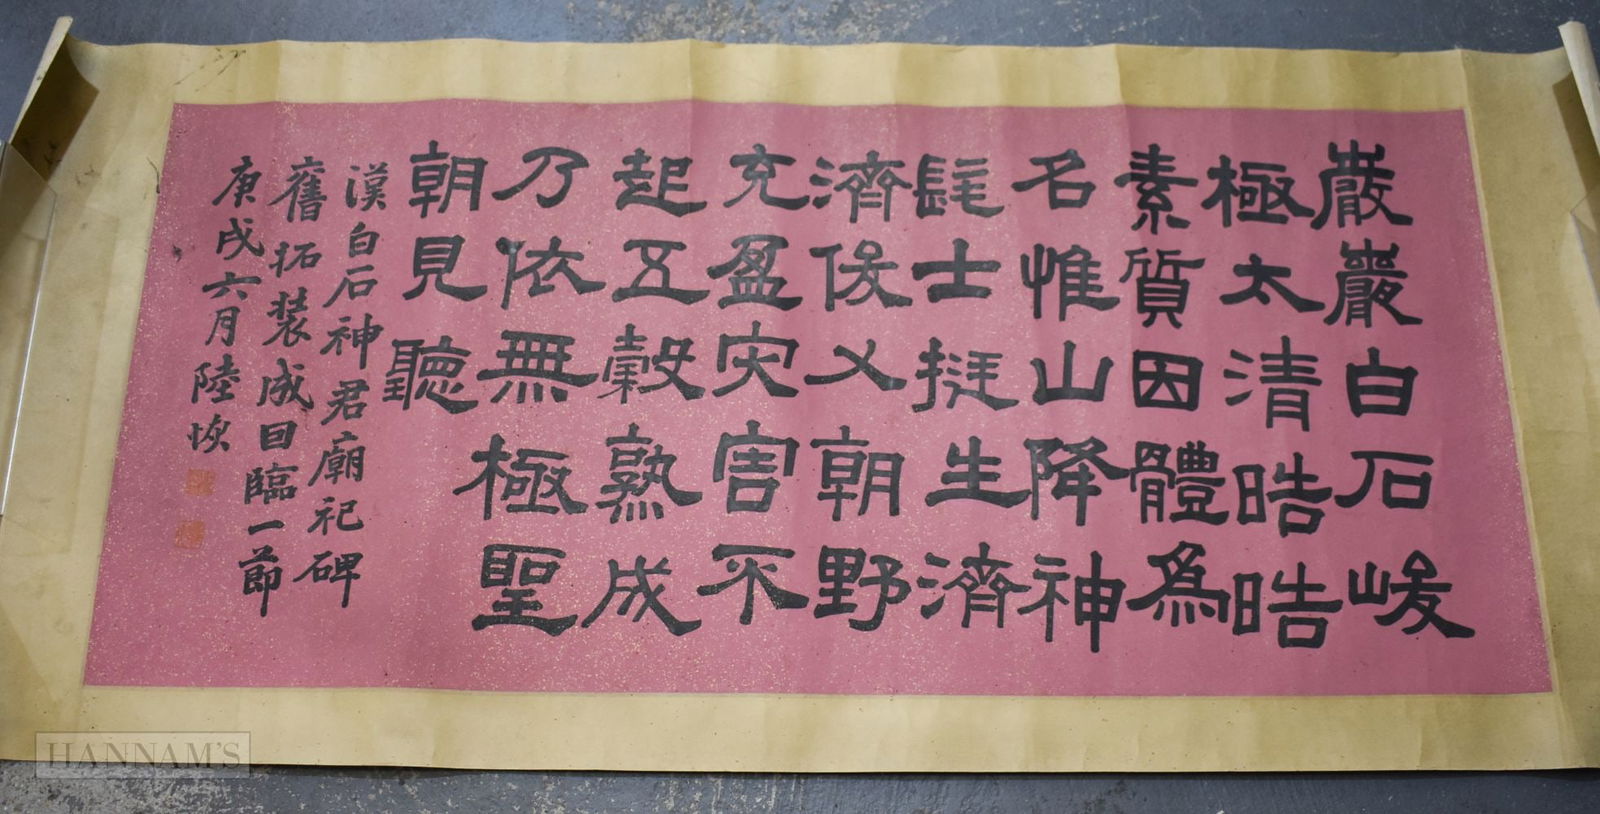 巖巖白石峻
極太清晧晧
素質因體爲
名惟山降神
髦士挺生濟
濟俊乂朝野
充盈灾害不
起五穀熟成
乃依無極聖
朝見聽
漢白石神君廟祀碑
舊拓裝成因臨一節
庚戌六月陸恢
HANNAM'S